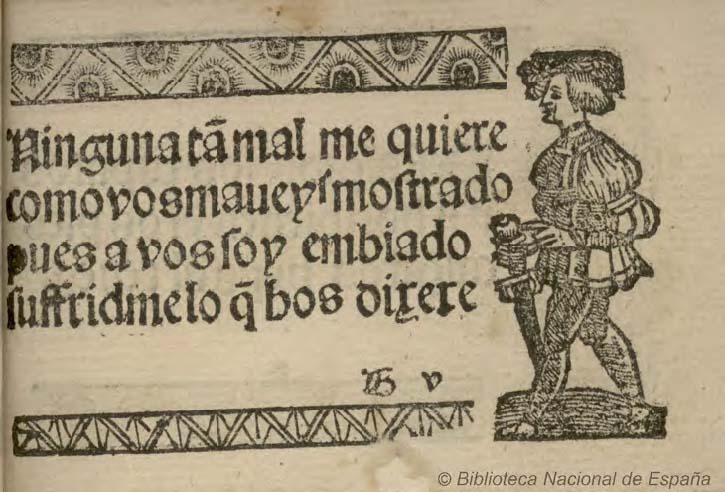 Ninguna tā mal me quiere
como vos maueys mostrado
pues a vos soy embiado
suffridmelo q̄ bos dixere
B v
© Biblioteca Nacional de España